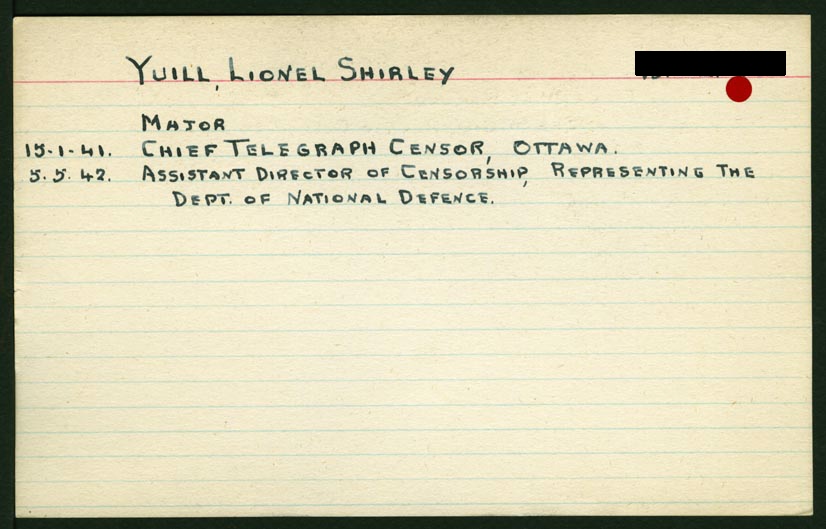 YUILL, LIONEL SHIRLEY
MAJOR
15-1-41. CHIEF TELEGRAPH CENSOR, OTTAWA.
5.5.42. ASSISTANT DIRECTOR OF CENSORSHIP, REPRESENTING THE
DEPT. OF NATIONAL DEFENCE.